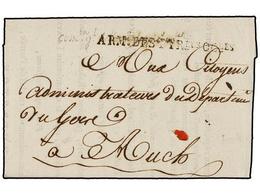 ARM. DES PYRENEES
Aux Citoyens
administrateurs du Departem
du Gers
a Auch